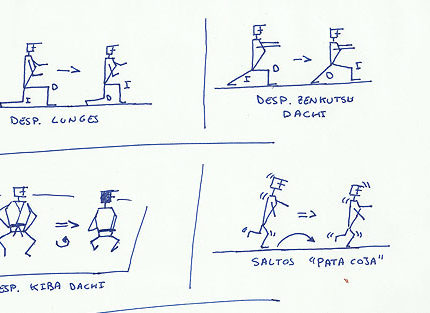 I D I D
DESP. LUNGES
D I D I
DESP. ZENKUTSU
DACHI
ESP. KIBA DACHI
SALTOS "PATA COJA"